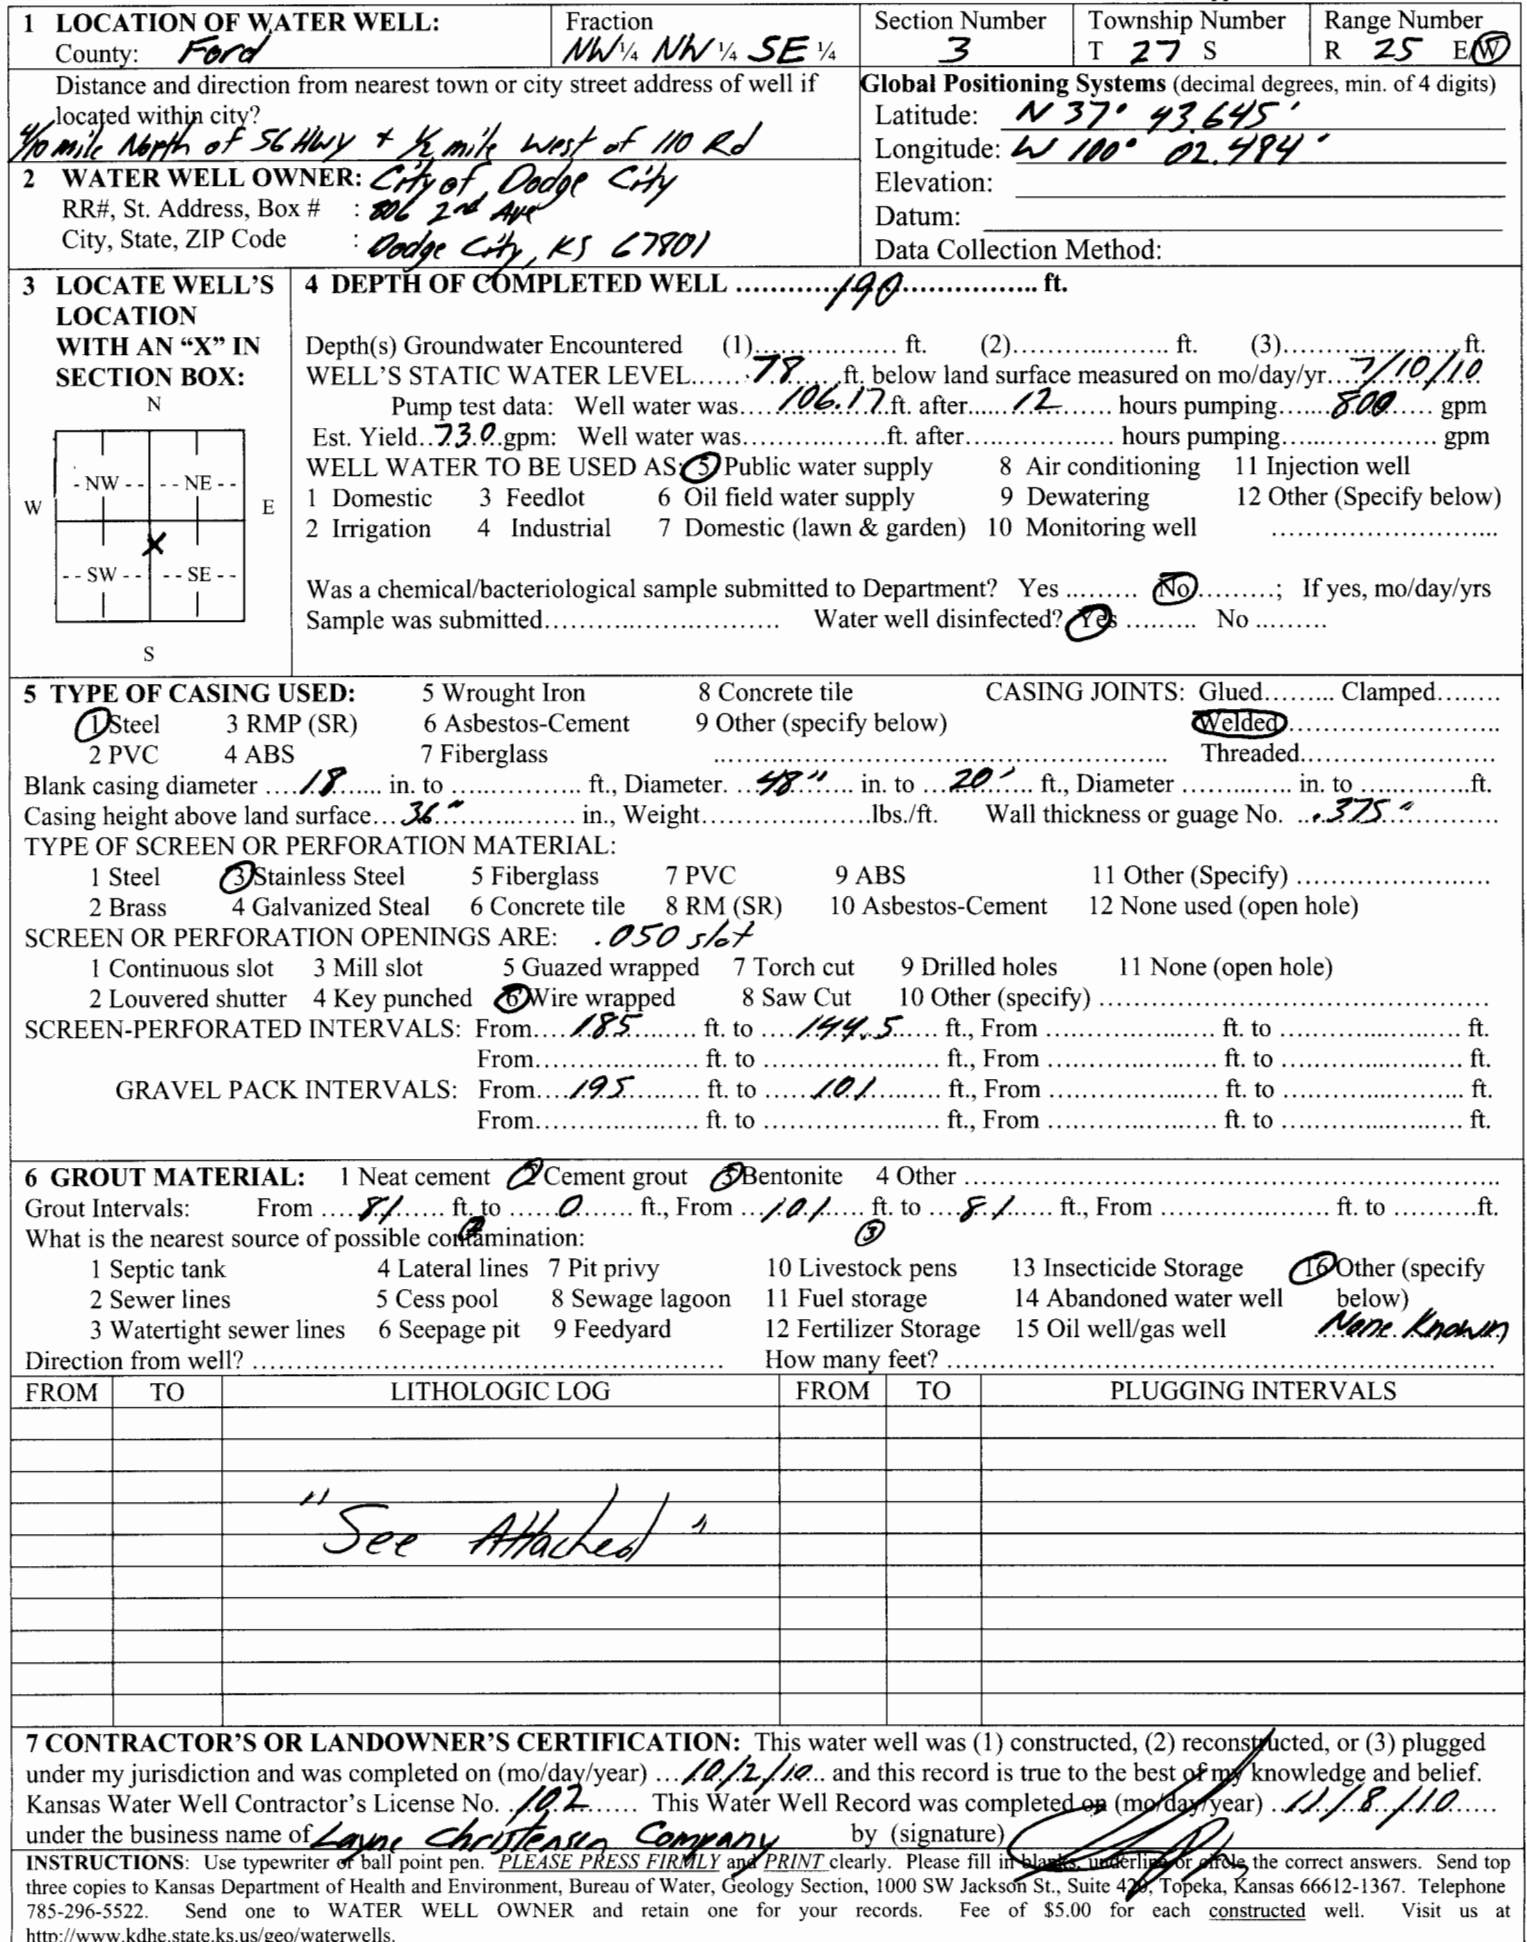 1 LOCATION OF WATER WELL: Fraction Section Number Township Number Range Number
County: Ford NW ¼ NW ¼ SE ¼ 3 T 27 S R 25 E/W
Distance and direction from nearest town or city street address of well if
located within city?
4/10 mile North of 56 Hwy + ½ mile west of 110 Rd
Global Positioning Systems (decimal degrees, min. of 4 digits)
Latitude: N 37° 43.645'
Longitude: W 100° 02.484'
Elevation:
Datum:
Data Collection Method:
2 WATER WELL OWNER: City of Dodge City
RR#, St. Address, Box # : 806 2nd Ave
City, State, ZIP Code : Dodge City, KS 67801
3 LOCATE WELL'S
LOCATION
WITH AN "X" IN
SECTION BOX:
N
NW NE
W E
X
SW SE
S
4 DEPTH OF COMPLETED WELL ............190................. ft.
Depth(s) Groundwater Encountered (1)................... ft. (2)..................... ft. (3)........................ft.
WELL'S STATIC WATER LEVEL......78......ft. below land surface measured on mo/day/yr....7/10/10
Pump test data: Well water was....106.17.ft. after......12....... hours pumping......800...... gpm
Est. Yield..730.gpm: Well water was...................ft. after.................... hours pumping.................. gpm
WELL WATER TO BE USED AS: 5 Public water supply 8 Air conditioning 11 Injection well
1 Domestic 3 Feedlot 6 Oil field water supply 9 Dewatering 12 Other (Specify below)
2 Irrigation 4 Industrial 7 Domestic (lawn & garden) 10 Monitoring well ..............................
Was a chemical/bacteriological sample submitted to Department? Yes ......... No..........; If yes, mo/day/yrs
Sample was submitted................................ Water well disinfected? Yes ......... No .........
5 TYPE OF CASING USED: 5 Wrought Iron 8 Concrete tile CASING JOINTS: Glued......... Clamped........
1 Steel 3 RMP (SR) 6 Asbestos-Cement 9 Other (specify below) Welded..............................
2 PVC 4 ABS 7 Fiberglass ....................................................... Threaded...........................
Blank casing diameter ....18...... in. to ................... ft., Diameter. ..48"..... in. to ....20'.... ft., Diameter ............... in. to ................ft.
Casing height above land surface...36"................ in., Weight.......................lbs./ft. Wall thickness or guage No. ...375"............
TYPE OF SCREEN OR PERFORATION MATERIAL:
1 Steel 3 Stainless Steel 5 Fiberglass 7 PVC 9 ABS 11 Other (Specify) ...........................
2 Brass 4 Galvanized Steal 6 Concrete tile 8 RM (SR) 10 Asbestos-Cement 12 None used (open hole)
SCREEN OR PERFORATION OPENINGS ARE: .050 slot
1 Continuous slot 3 Mill slot 5 Guazed wrapped 7 Torch cut 9 Drilled holes 11 None (open hole)
2 Louvered shutter 4 Key punched 6 Wire wrapped 8 Saw Cut 10 Other (specify) .......................................................
SCREEN-PERFORATED INTERVALS: From....185........ ft. to ....144.5...... ft., From ......................... ft. to ............................ ft.
From....................... ft. to ......................... ft., From ......................... ft. to ............................ ft.
GRAVEL PACK INTERVALS: From....195......... ft. to ......101.......... ft., From ......................... ft. to ............................ ft.
From....................... ft. to ......................... ft., From ......................... ft. to ............................ ft.
6 GROUT MATERIAL: 1 Neat cement 2 Cement grout 3 Bentonite 4 Other ..............................................................................
Grout Intervals: From .....81...... ft. to ......0....... ft., From ...101...... ft. to ....81...... ft., From .......................... ft. to ...........ft.
What is the nearest source of possible contamination: 2 3
1 Septic tank 4 Lateral lines 7 Pit privy 10 Livestock pens 13 Insecticide Storage 16 Other (specify
2 Sewer lines 5 Cess pool 8 Sewage lagoon 11 Fuel storage 14 Abandoned water well below)
3 Watertight sewer lines 6 Seepage pit 9 Feedyard 12 Fertilizer Storage 15 Oil well/gas well None Known
Direction from well? ............................................................... How many feet? ..........................................................................
FROM TO LITHOLOGIC LOG FROM TO PLUGGING INTERVALS
"See Attached"
7 CONTRACTOR'S OR LANDOWNER'S CERTIFICATION: This water well was (1) constructed, (2) reconstructed, or (3) plugged
under my jurisdiction and was completed on (mo/day/year) ...10/2/10... and this record is true to the best of my knowledge and belief.
Kansas Water Well Contractor's License No. ..102....... This Water Well Record was completed on (mo/day/year) ..11/8/10.....
under the business name of Layne Christensen Company by (signature)
INSTRUCTIONS: Use typewriter or ball point pen. PLEASE PRESS FIRMLY and PRINT clearly. Please fill in blanks, underline or circle the correct answers. Send top
three copies to Kansas Department of Health and Environment, Bureau of Water, Geology Section, 1000 SW Jackson St., Suite 420, Topeka, Kansas 66612-1367. Telephone
785-296-5522. Send one to WATER WELL OWNER and retain one for your records. Fee of $5.00 for each constructed well. Visit us at
http://www.kdhe.state.ks.us/geo/waterwells.